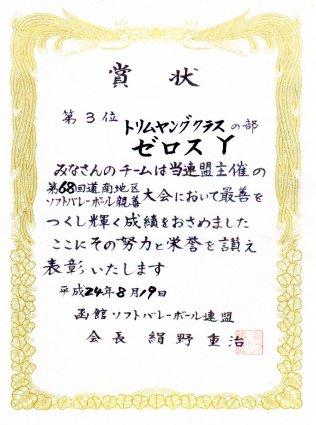 賞状
第3位 トリムヤングクラスの部
ゼロスY
みなさんのチームは当連盟主催の
第68回道南地区
ソフトバレーボール親善大会において最善を
つくし輝く成績をおさめました
ここにその努力と栄誉を讃え
表彰いたします
平成24年8月19日
函館ソフトバレーボール連盟
会長 絹野重治